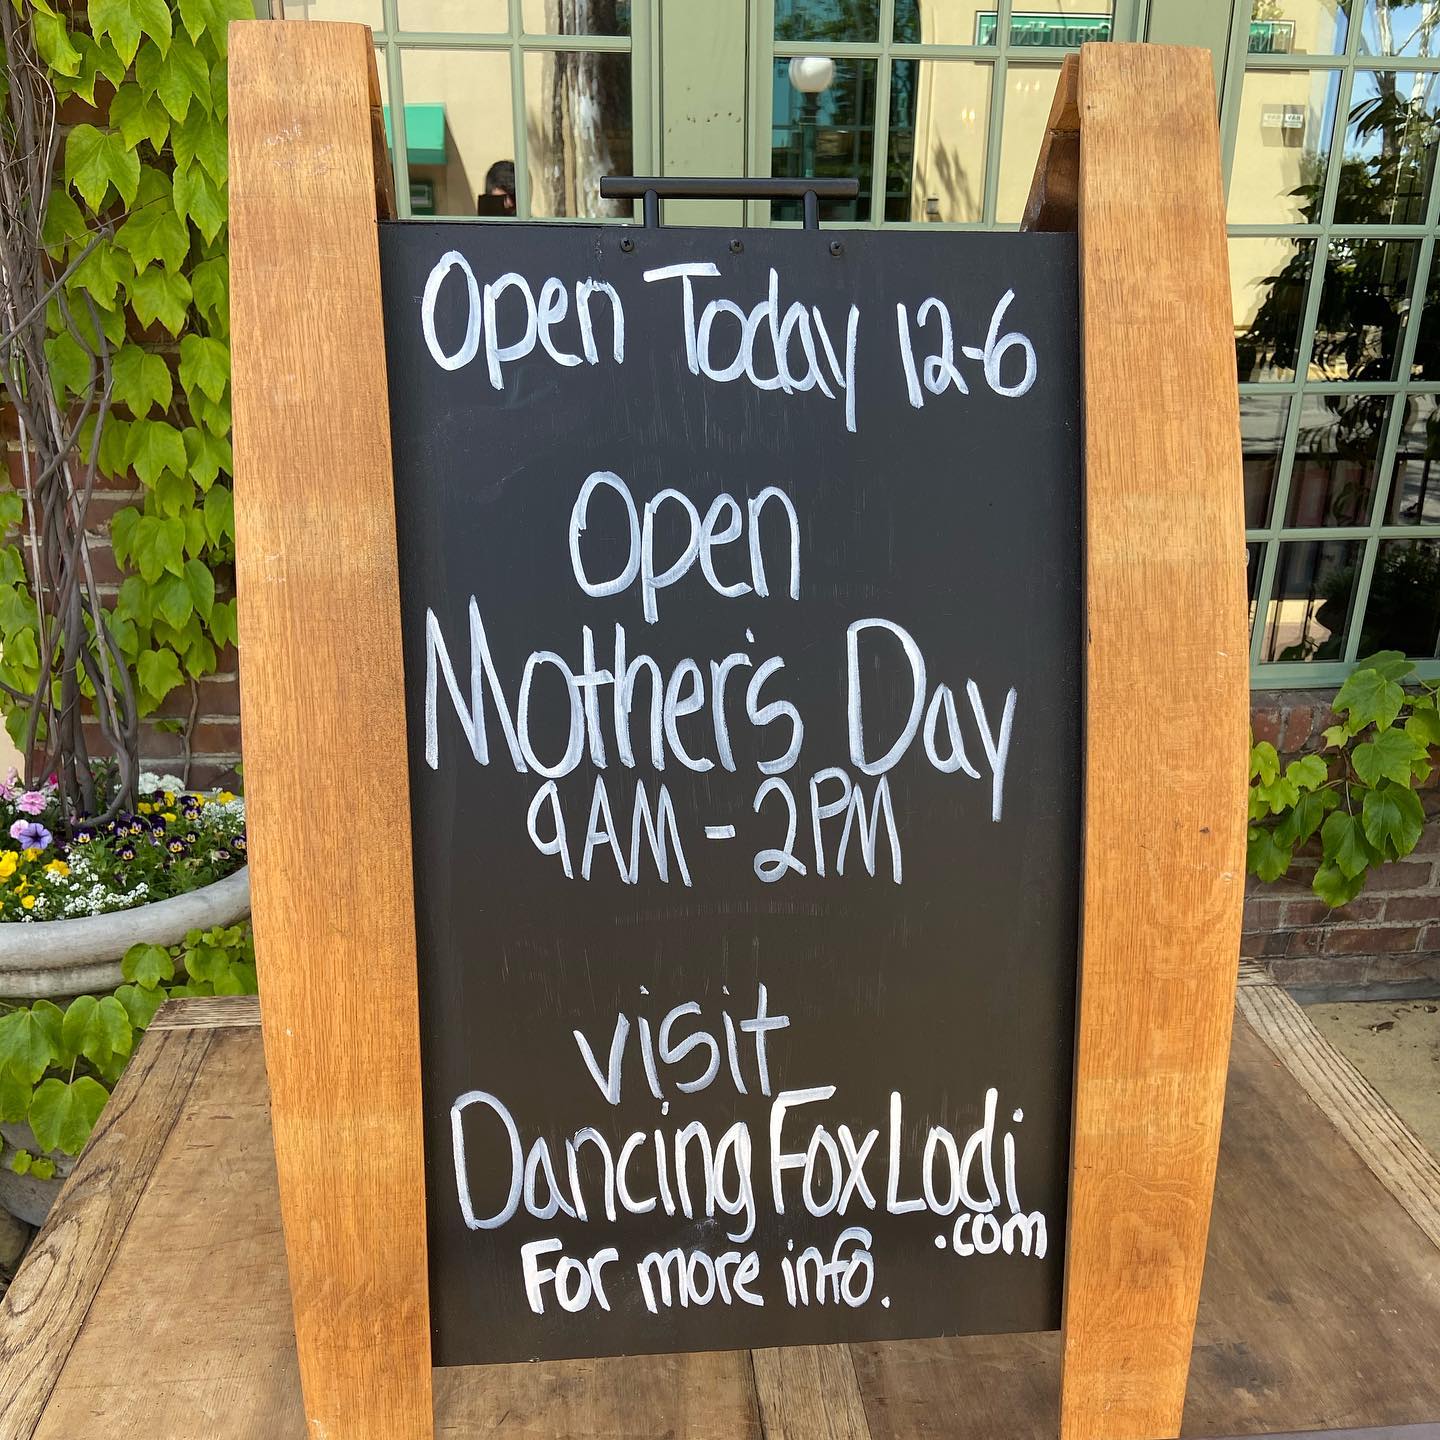 Open Today 12-6
Open
Mother's Day
9AM - 2PM
visit
DancingFoxLodi
.com
For more info.